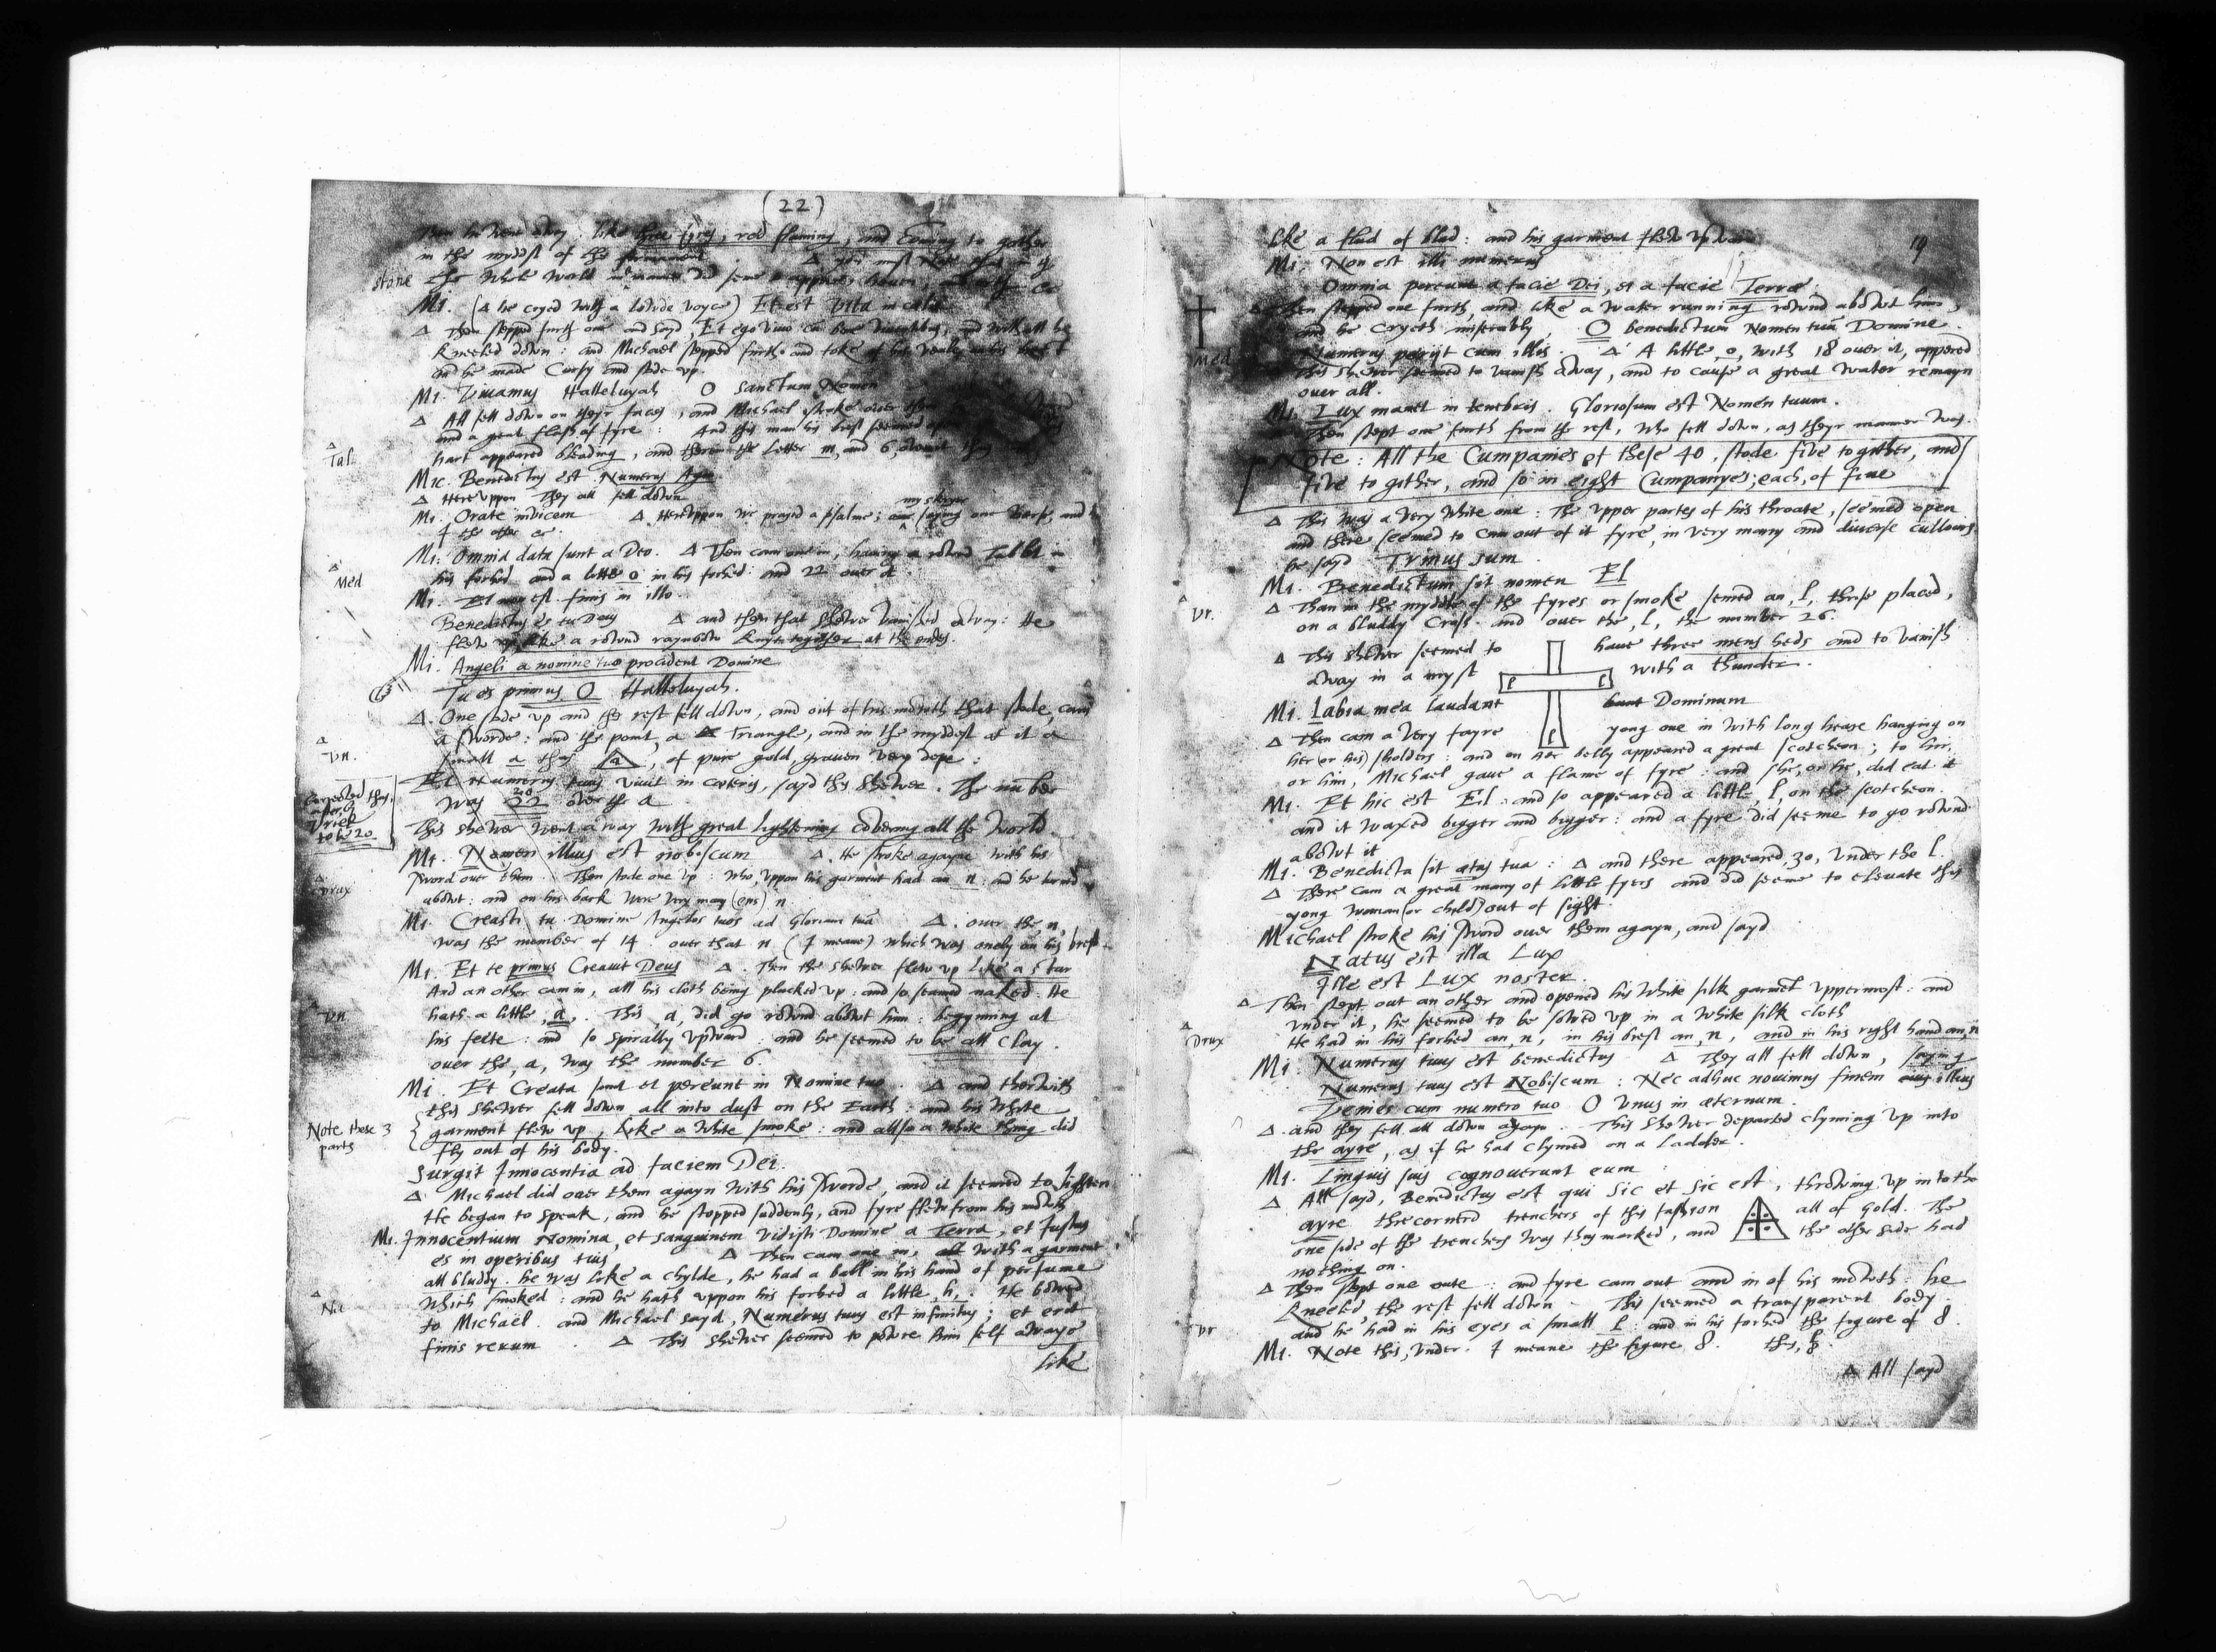 (22)
in the myddst of the
stone the whole world
Mi. (Δ he cryed with a lowde voyce) Et est vita in caelis
Δ Then stepped furth one and sayd, Et ego vivo
kneeled down: and Michael stepped furth and toke of his
and he made Cursy and stode up.
Mi. Vivamus Halleluyah O Sanctum Nomen
Δ All fell down on theyr faces, and Michael stroke over them
and a great flash of fyre: And this man his brest seemed open
hart appeared bleading, and therein the Letter m, and 6, above it
Δ Tal.
Mic. Benedictus est Numerus Agni
Δ Hereuppon they all fell down
Mi. Orate invicem Δ Hereuppon we prayed a psalme; my skryer saying one verse, and
I the other &c.
Mi: Omnia data sunt a Deo. Δ Then cam one in, having a rownd Tablet in
his forhed and a little o in his forhed: and 22 over it
Δ Med
Mi. Et non est finis in illo.
Benedictus es tu Deus Δ and then that shewer vanished away: He
flew up, like a rownd raynbow knyt togither at the endes.
Mi. Angeli a nomine tuo procident Domine
Tu es primus O Halleluyah.
Δ. One stode up and the rest fell down, and out of his mowth that stode, cam
a sworde: and the point, a Triangle, and in the myddest of it a
small a thus a, of pure gold, graven very depe:
Δ Vn.
Et Numerus tuus vivit in caeteris, sayd this shewer. The number
was 22 20 over the a
corrected thus, after by Vriel to be 20
This shewer went away with great lightening covering all the World.
Mi. Nomen illius est nobiscum Δ. He stroke agayne with his
sword over them. Then stode one up: Who, uppon his garment had an n: and he turned
abowt: and on his back were very many (ens) n
Δ Drux
Mi. Creasti tu Domine Angelos tuos ad Gloriam tuam Δ. over the, n,
was the number of 14: over that n (I meane) which was onely on his brest
Mi. Et te primus Creavit Deus Δ. Then the shewer flew up like a star
And an other cam in, all his cloth being plucked up: and so seamed naked: He
hath a little, a. This, a, did go rownd abowt him: begynning at
his feete: and so spirally upward: and he seemed to be all Clay.
over the, a, was the number 6.
Δ Vn
Mi. Et Creata sunt et pereunt in Nomine tuo. Δ and therwith
this shewer fell down all into dust on the Earth: and his white
garment flew up, like a white smoke: and allso a white thing did
fly out of his body.
Note these 3 parts
Surgit Innocentia ad faciem Dei.
Δ Michael did over them agayn with his sworde, and it seemed to lighten
He began to speak, and he stopped suddenly, and fyre flew from his mowth
Mi. Innocentium Nomina, et sanguinem vidisti Domine a Terra, et Justus
es in operibus tuis Δ Then cam one in, with a garment
all bluddy. he was like a chylde, he had a ball in his hand of perfume
Which smoked: and he hath uppon his forhed a little, h,. He bowed
to Michael. and Michael sayd, Numerus tuus est infinitus; et erit
finis rerum Δ This shewer seemed to powre him self awaye
Δ Na
like
19
like a flud of blud: and his garment flew upward
Mi: Non est illi numerus
Omnia pereunt a facie Dei, et a facie Terrae
Δ Then stepped one furth, and like a water running rownd abowt him,
and he cryeth miserably, O benedictum Nomen tuum Domine.
Numerus periit cum illis. Δ A little, o, with 18 over it, appered
Δ Med.
This shewer seemed to vanish away, and to cause a great water remayn
over all.
Mi. Lux manet in tenebris. Gloriosum est Nomen tuum.
Δ Then stept one furth from the rest, who fell down, as theyr manner was.
Note: All the Cumpanies of these 40, stode five togither, and
five to gither, and so in eight Cumpanyes; each, of five
Δ This was a very white one: The upper partes of his throate, seemed open
and there seemed to cum out of it fyre, in very many and diverse cullours.
he sayd Trinus sum.
Mi. Benedictum sit nomen El
Δ Than in the myddle of the fyres or smoke semed an, l, thrise placed,
on a bluddy Cross. and over the, l, the number 26.
Δ Ur.
Δ This shewer seemed to have three mens heds and to vanish
away in a myst with a thunder.
l l l
Mi. Labia mea laudant Dominum
Δ Then cam a very fayre yong one in with long heare hanging on
her (or his) sholders: and on her belly appeared a great scotcheon; to hir,
or him, Michael gave a flame of fyre: and she, or he, did eat it
Mi. Et hic est El: and so appeared a little, l, on the scotcheon.
and it waxed bigger and bigger: and a fyre did seeme to go rownd
abowt it
Mi. Benedicta sit aetas tua: Δ and there appeared, 30, under the l.
Δ There cam a great many of little fyers and did seeme to elevate this
yong woman (or child) out of sight.
Michael stroke his sword over them agayn, and sayd
Natus est illa Lux
Ille est Lux noster.
Δ Then stept out an other and opened his white silk garment uppermost: and
under it, he seemed to be sowed up in a white silk cloth
He had in his forhed an, n, in his brest an, n, and in his right hand an, n
Δ Drux
Mi: Numerus tuus est benedictus Δ They all fell down, saying
Numerus tuus est Nobiscum: Nec adhuc novimus finem illius
Venies cum numero tuo O unus in aeternum.
Δ. and they fell all down agayn. This shewer departed clyming up into
the ayre, as if he had clymed on a Ladder.
Mi. Linguis suis cognoverunt eum
Δ All sayd, Benedictus est qui sic et sic est, throwing up in to the
ayre thre cornerd trenchers of this fashion all of Gold. The
one side of the trenchers was thus marked, and the other side had
nothing on.
Δ Then stept one oute: and fyre cam out and in of his mowth: he
kneeled, the rest fell down. This seemed a transparent body.
and he had in his eyes a small l: and in his forhed the figure of 8.
Δ Vr
Mi. Note this, under. I meane the figure 8. thus,
Δ All sayd